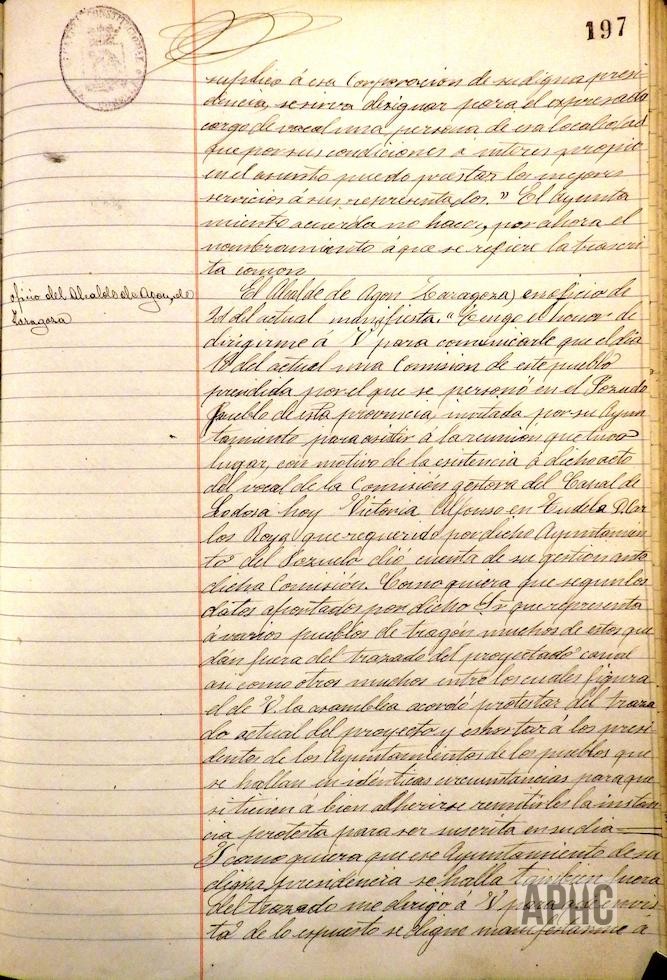 197
suplico á esa Corporación de su digna presi-
dencia, se sirva designar para el expresado
cargo de vocal una persona de esa localidad
que por sus condiciones é interes propio
en el asunto pueda prestar los mejores
servicios á sus representados." El Ayunta
miento acuerda no hacer, por ahora el
nombramiento á que se refiere la trascri
ta comon
oficio del Alcalde de Agon, de
Zaragoza
El Alcalde de Agon (Zaragoza) en oficio de
del actual manifiesta. "Tengo el honor de
dirigirme á V para comunicarle que el dia
18 del actual una Comision de este pueblo
precidida por el que se personó en el Pozuelo
pueblo de esta provincia, invitada por su Ayun
tamiento para asistir á la reunión que tuvo
lugar, con motivo de la esistencia á dicho acto
del vocal de la Comisión gestora del Canal de
Lodosa hoy Victoria Alfonso en Tudela D. Car
los Roya que requerido por dicho Ayuntamien
to del Pozuelo dió cuenta de su gestion ante
dicha Comisión. Como quiera que segun los
datos aportados por dicho Sr que representa
á varios pueblos de Aragón muchos de estos que
dán fuera del trazado del proyectado canal
asi como otros muchos entre los cuales figura
el de V. la asamblea acordó protestar del traza
do actual del proyecto y eshortar á los presi-
dentes de los Ayuntamientos de los pueblos que
se hallan en idénticas circunstancias para que
si tienen á bien adherirse remitirles la instan
cia protesta para ser suscrita en su dia
Y como quiera que ese Ayuntamiento de su
digna presidencia se halla tambien fuera
del trazado me dirijo á V para que en vis
ta de lo expuesto se digne manifestarme á
APHC